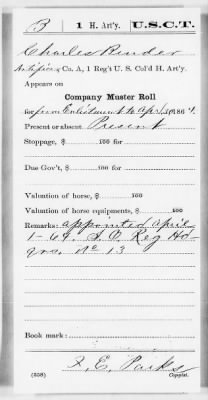 B | 1 H. Art'y. | U.S.C.T.
Charles Rinder
Artificer, Co. A, 1 Reg't U. S. Col'd H. Art'y.
Appears on
Company Muster Roll
for from Enlistment to Apr 30, 1864.
Present or absent Present
Stoppage, $ 100 for
Due Gov't, $ 100 for
Valuation of horse, $ 100
Valuation of horse equipments, $ 100
Remarks: appointed April
1-64. S.O. Reg Hd
qrs. No 13
Book mark:
J. E. Parks
(358) Copyist.